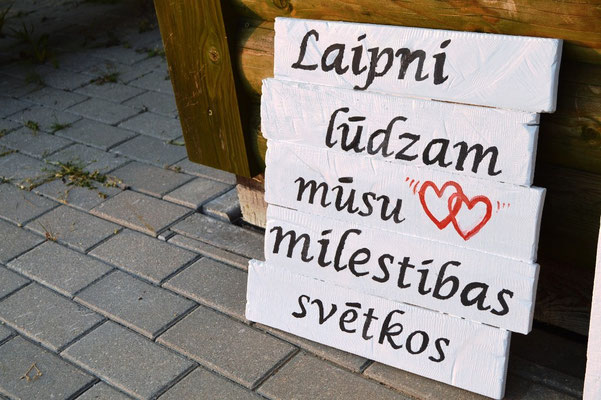 Laipni
lūdzam
mūsu
mīlestības
svētkos